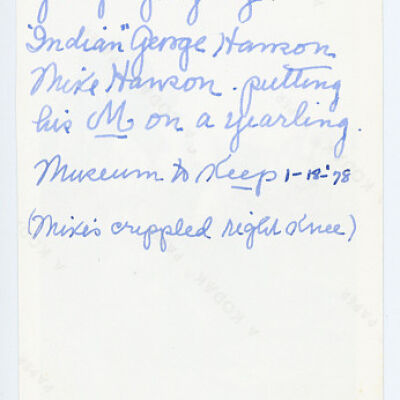 "Indian" George Hanson
Mike Hanson. putting
his M on a yearling.
Museum to Keep 1-18-'78
(Mike's crippled right Knee)
A KODAK PAPER